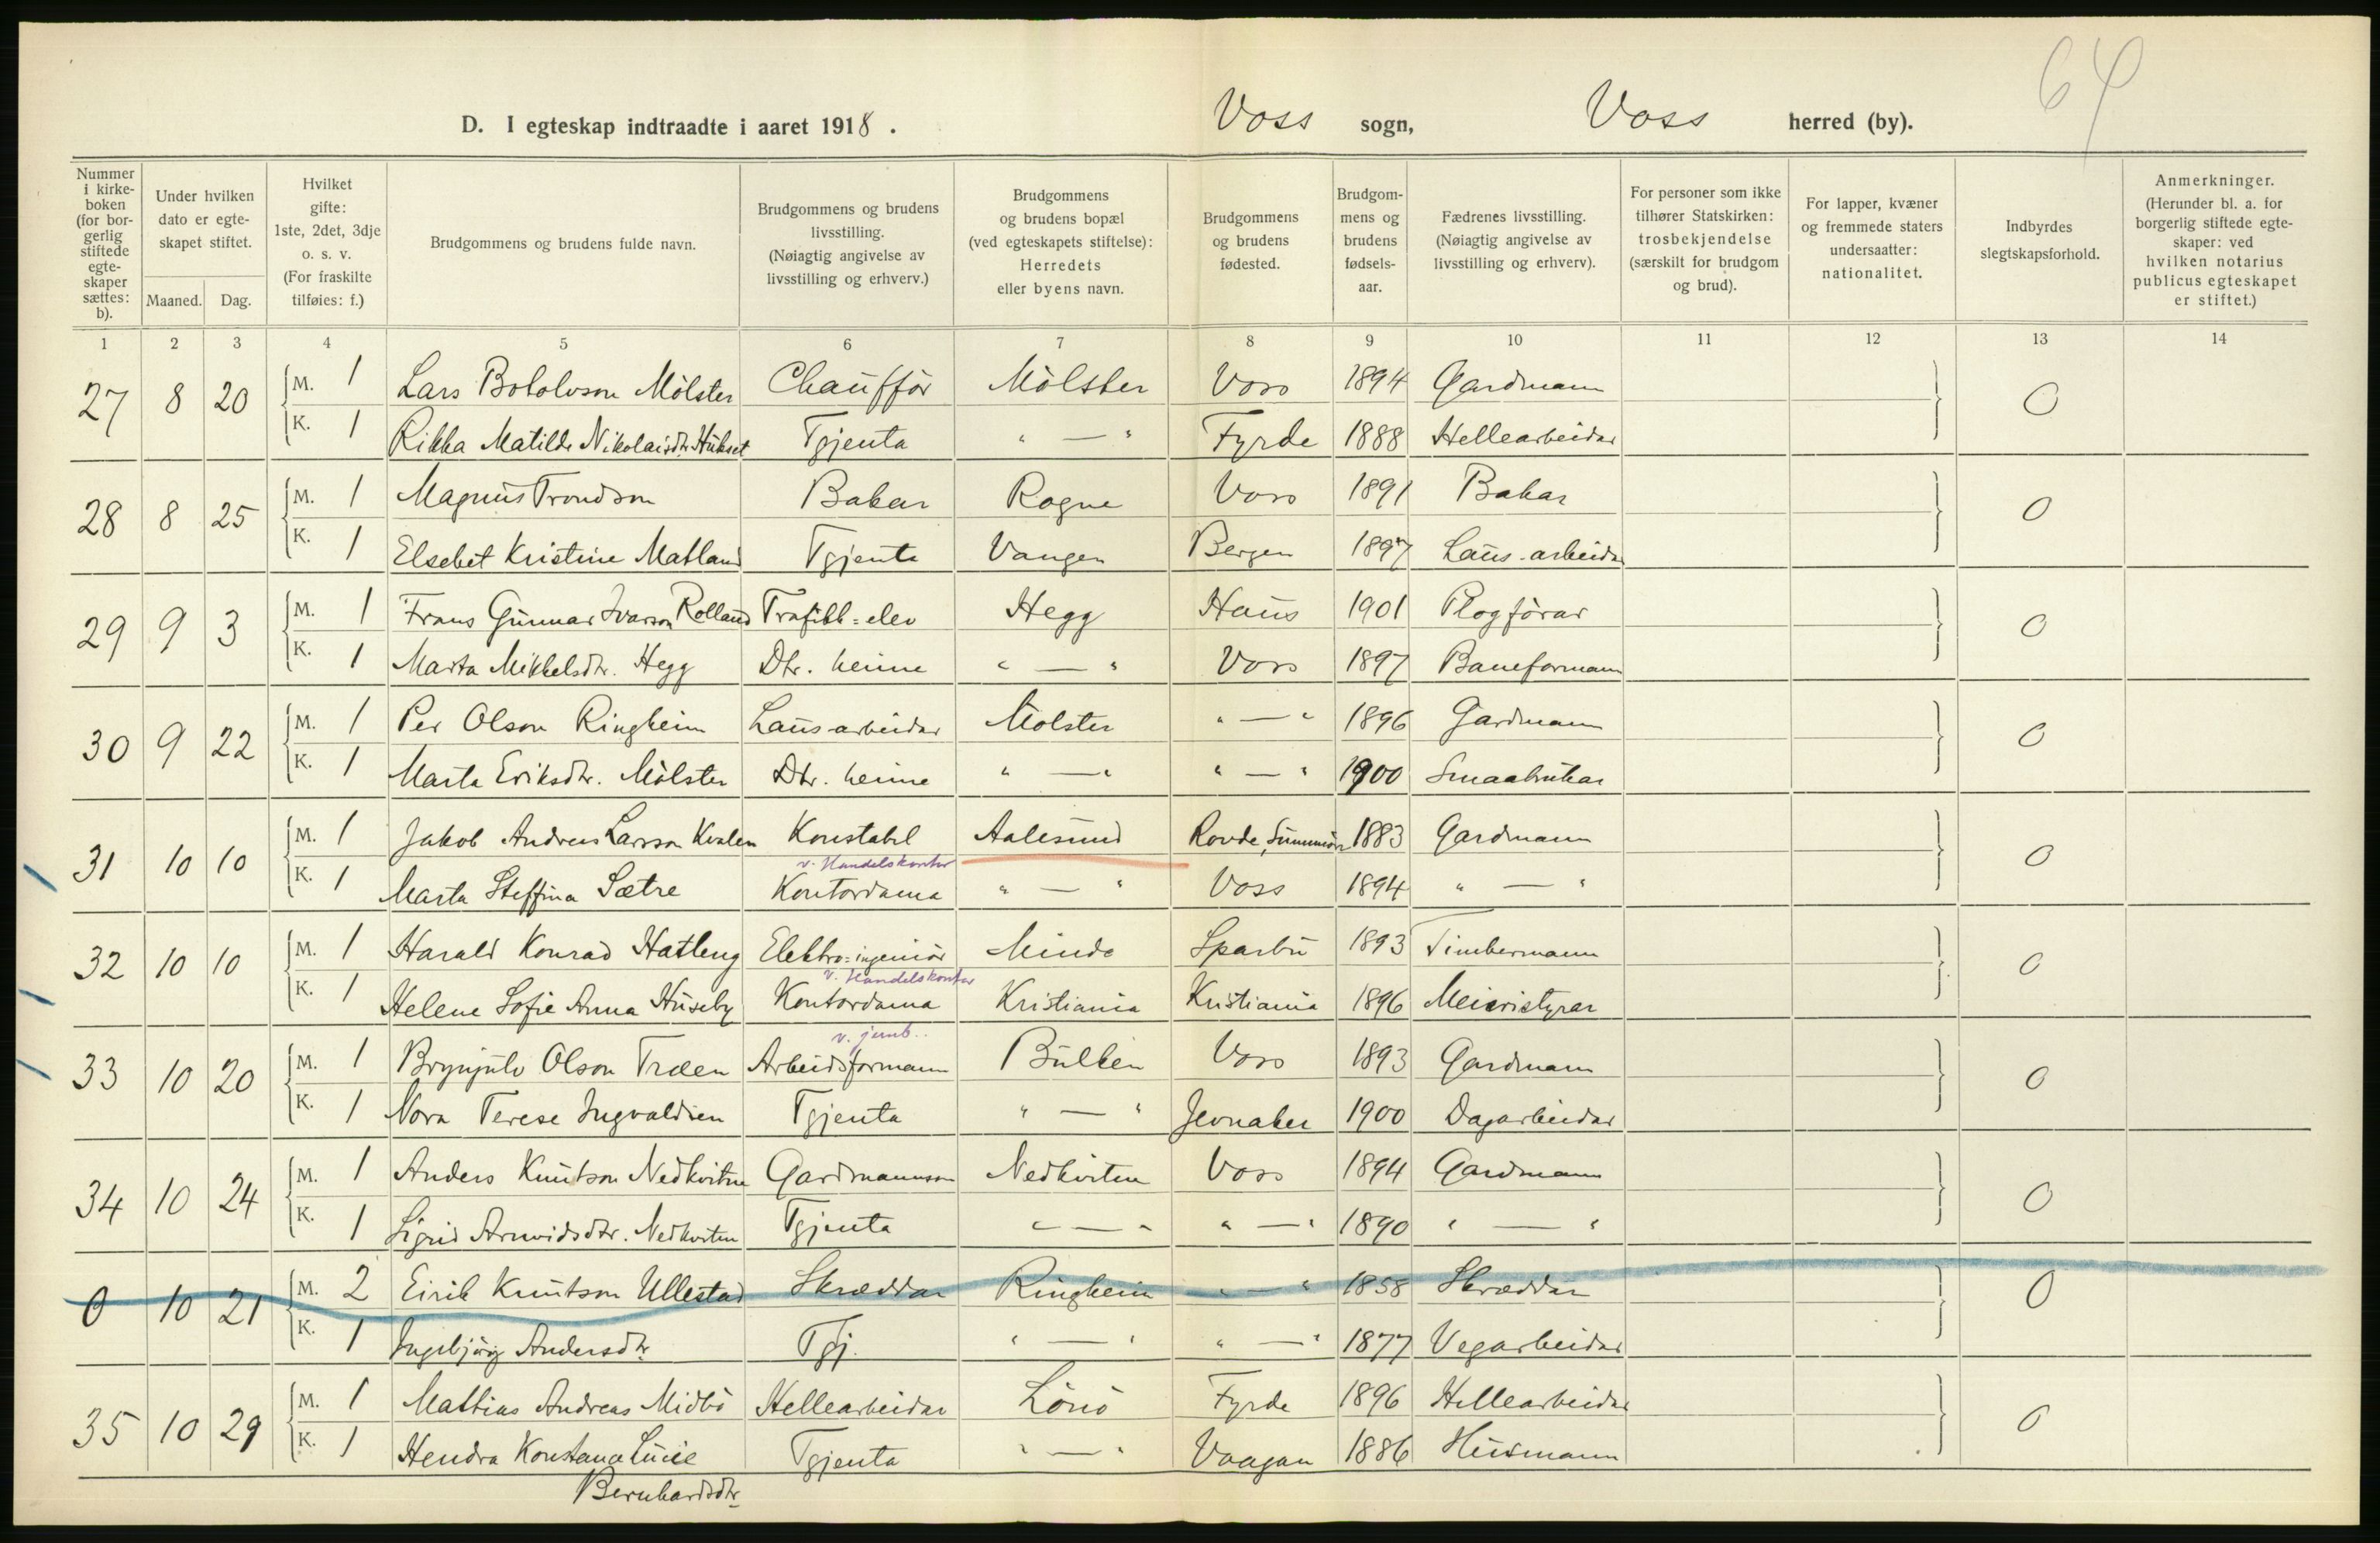 64
D. I egteskap indtraadte i aaret 1918. Voss sogn, Voss herred (by).
Nummer i kirkeboken (for borgerlig stiftede egteskaper sættes: b).
Under hvilken dato er egteskapet stiftet.
Maaned. Dag.
Hvilket gifte: 1ste, 2det, 3dje o. s. v. (For fraskilte tilføies: f.)
Brudgommens og brudens fulde navn.
Brudgommens og brudens livsstilling. (Nøiagtig angivelse av livsstilling og erhverv.)
Brudgommens og brudens bopæl (ved egteskapets stiftelse): Herredets eller byens navn.
Brudgommens og brudens fødested.
Brudgommens og brudens fødselsaar.
Fædrenes livsstilling. (Nøiagtig angivelse av livsstilling og erhverv).
For personer som ikke tilhører Statskirken: trosbekjendelse (særskilt for brudgom og brud).
For lapper, kvæner og fremmede staters undersaatter: nationalitet.
Indbyrdes slegtskapsforhold.
Anmerkninger. (Herunder bl. a. for borgerlig stiftede egteskaper: ved hvilken notarius publicus egteskapet er stiftet.)
1 2 3 4 5 6 7 8 9 10 11 12 13 14
27 8 20 M. 1 Lars Botolvson Mölster Chaufför Mölster Voss 1894 Gardmann 0
K. 1 Rikka Matilde Nikolaisdtr. Tgjenta " — " Fyrde 1888 Hellearbeidar
28 8 25 M. 1 Magnus Trondson Bakar Rogne Voss 1891 Bakar 0
K. 1 Elsebet Kristine Matland Tgjenta Vangen Bergen 1897 Laus-arbeidar
29 9 3 M. 1 Frans Gunnar Ivarson Rolland Trafikk=elev Hegg Haus 1901 Plogförar 0
K. 1 Marta Mikkelsdtr. Hegg Dtr. heime " — " Voss 1897 Baneformann
30 9 22 M. 1 Per Olson Ringheim Lausarbeidar Mölster " — " 1896 Gardmann 0
K. 1 Marta Eriksdtr. Mölster Dtr. heime " — " " — " 1900 Smaabrukar
31 10 10 M. 1 Jakob Andreas Larsson Kvalen Konstabel Aalesund Rovde, Sunnmör 1883 Gardmann 0
v. Handelskontor
K. 1 Marta Steffina Sætre Kontordama " — " Voss 1894 " — "
32 10 10 M. 1 Harald Konrad Hatleng Elektro=ingeniör Minde Sparbu 1893 Timbermann 0
v. Handelskontor
K. 1 Helene Sofie Anna Huseby Kontordama Kristiania Kristiania 1896 Meieristyrar
v. jernb..
33 10 20 M. 1 Brynjulv Olson Træen Arbeidsformann Bulken Voss 1893 Gardmann 0
K. 1 Nora Terese Ingvaldsen Tgjenta " — " Jevnaker 1900 Dagarbeidar
34 10 24 M. 1 Anders Knutson Nedkvitne Gardmannsson Nedkvitne Voss 1894 Gardmann 0
K. 1 Sigrid Arnvidsdtr. Nedkvitne Tgjenta " — " " — " 1890 " — "
0 10 21 M. 2 Eirik Knutson Ullestad Skræddar Ringheim " — " 1858 Skræddar 0
K. 1 Ingebjörg Andersdtr. Tgj. " — " " — " 1877 Vegarbeidar
35 10 29 M. 1 Mattias Andreas Midbö Hellearbeidar Lönö Fyrde 1896 Hellearbeidar 0
K. 1 Hendra Konstanse Lucie Tgjenta " — " Vaagan 1886 Husmann
Bernhardsdtr.